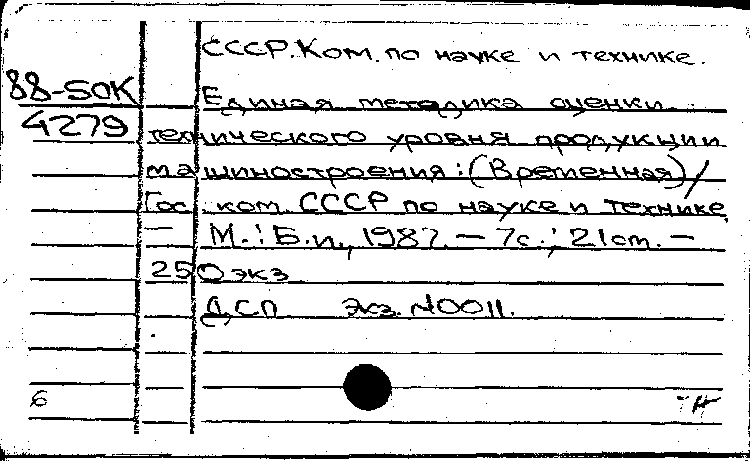 СССР. Ком. по науке и технике.
88-5ОК
4279
Единая методика оценки
технического уровня продукции
машиностроения: (Временная)/
Гос. ком. СССР по науке и технике.
— М.: Б.и., 1987. — 7с.; 21cm. —
250 экз
ДСП Экз. N0011.
6